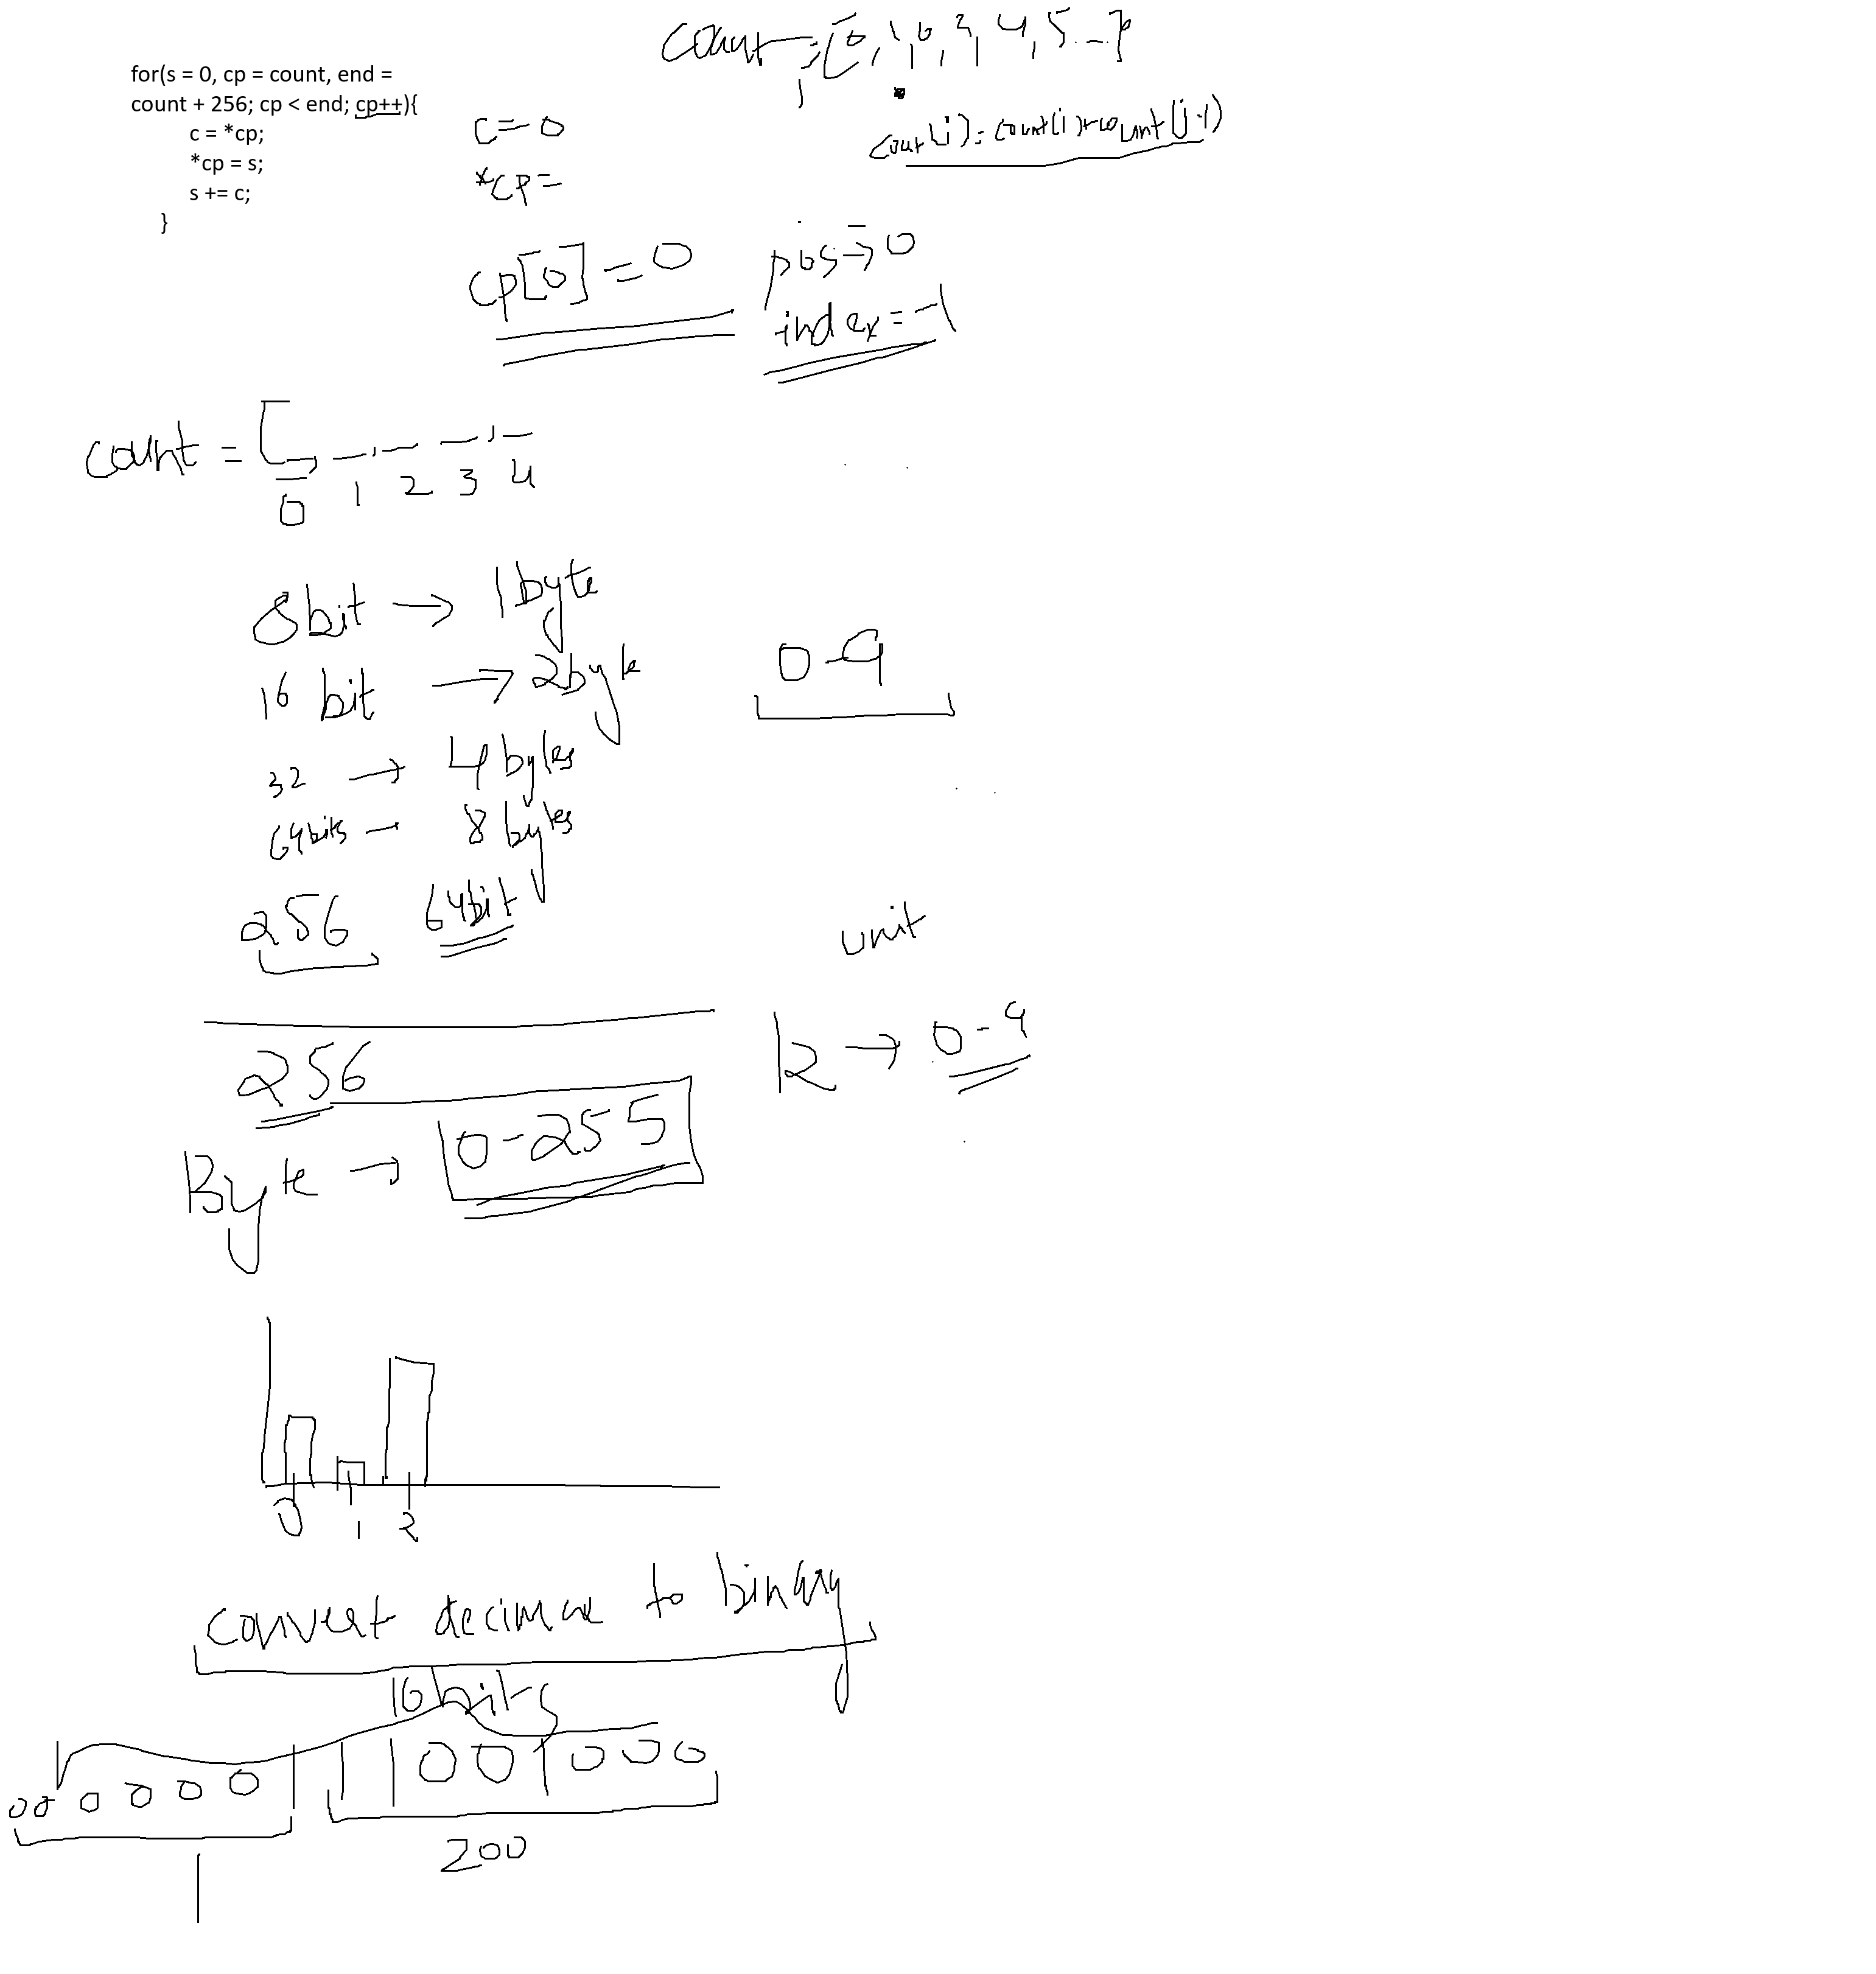 for(s = 0, cp = count, end =
count + 256; cp < end; cp++){
c = *cp;
*cp = s;
s += c;
}
c = 0
*cp =
count = [0, 1, 0, 2, 4, 5 - ]
count(j) = count(j) + count(j-1)
cp[0] = 0
pos → 0
index = -1
count = [_, _, _ _, _
0 1 2 3 4
8 bit → 1 byte
16 bit → 2 byte
32 → 4 bytes
64 bits - 8 bytes
256 64 bit
0-9
unit
k → 0-9
256
Byte → 0-255
0 1 2
convert to binary
16 bits
0 0 0 0 0 0 1 1 1 0 0 1 0 0 0
1 200